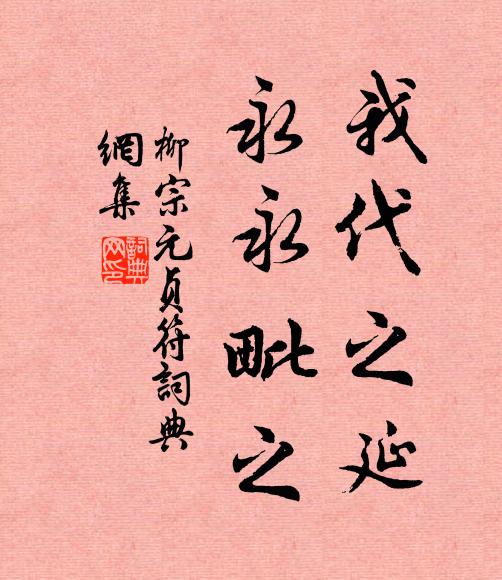 我代之延
永永毗之
柳宗元貞符詞典
網集
詞典
网印